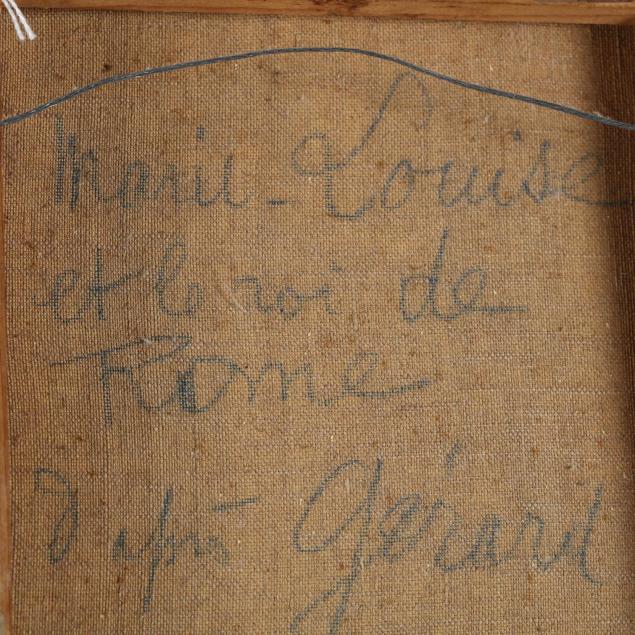 Marie-Louise
et le roi de
Rome
d'après Gérard